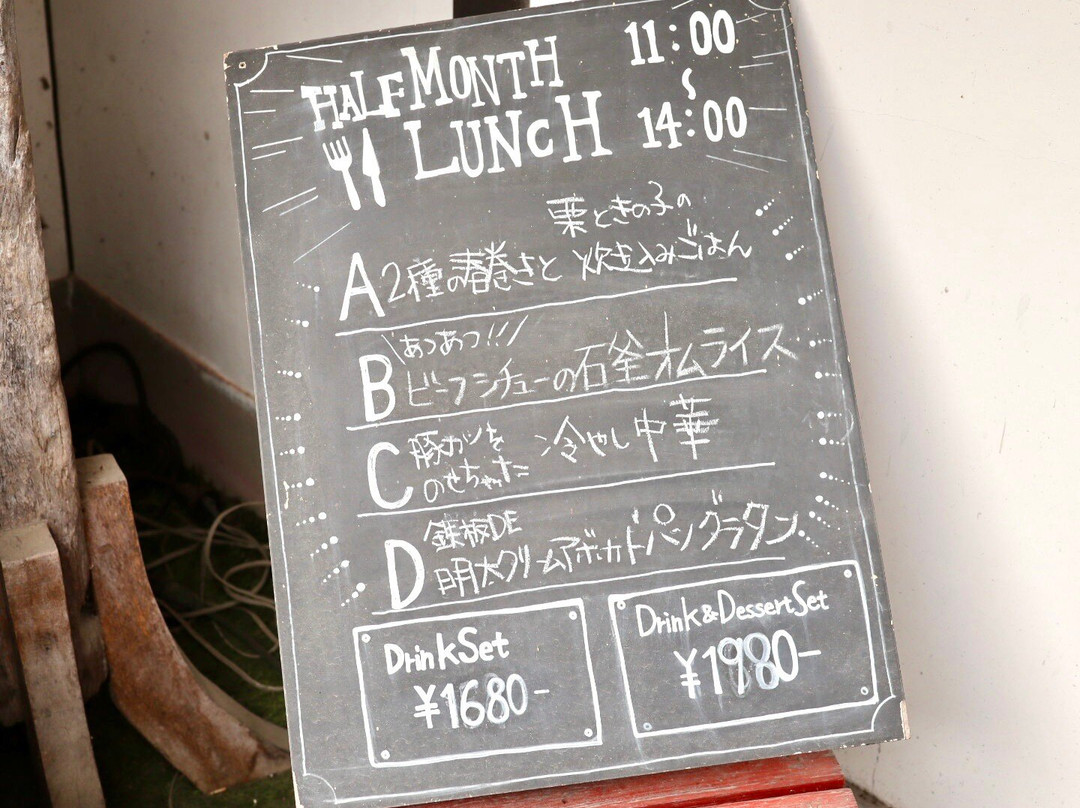 HALF MONTH
LUNCH
11:00
~
14:00
栗ときの子の
A 2種の春巻きと 炊き込みごはん
\あつあつ!!/
B ビーフシチューの石釜オムライス
C 豚カツを
のせちゃった 冷やし中華
D 鉄板DE
明太クリームアボカドパングラタン
Drink Set
¥1680-
Drink & Dessert Set
¥1980-